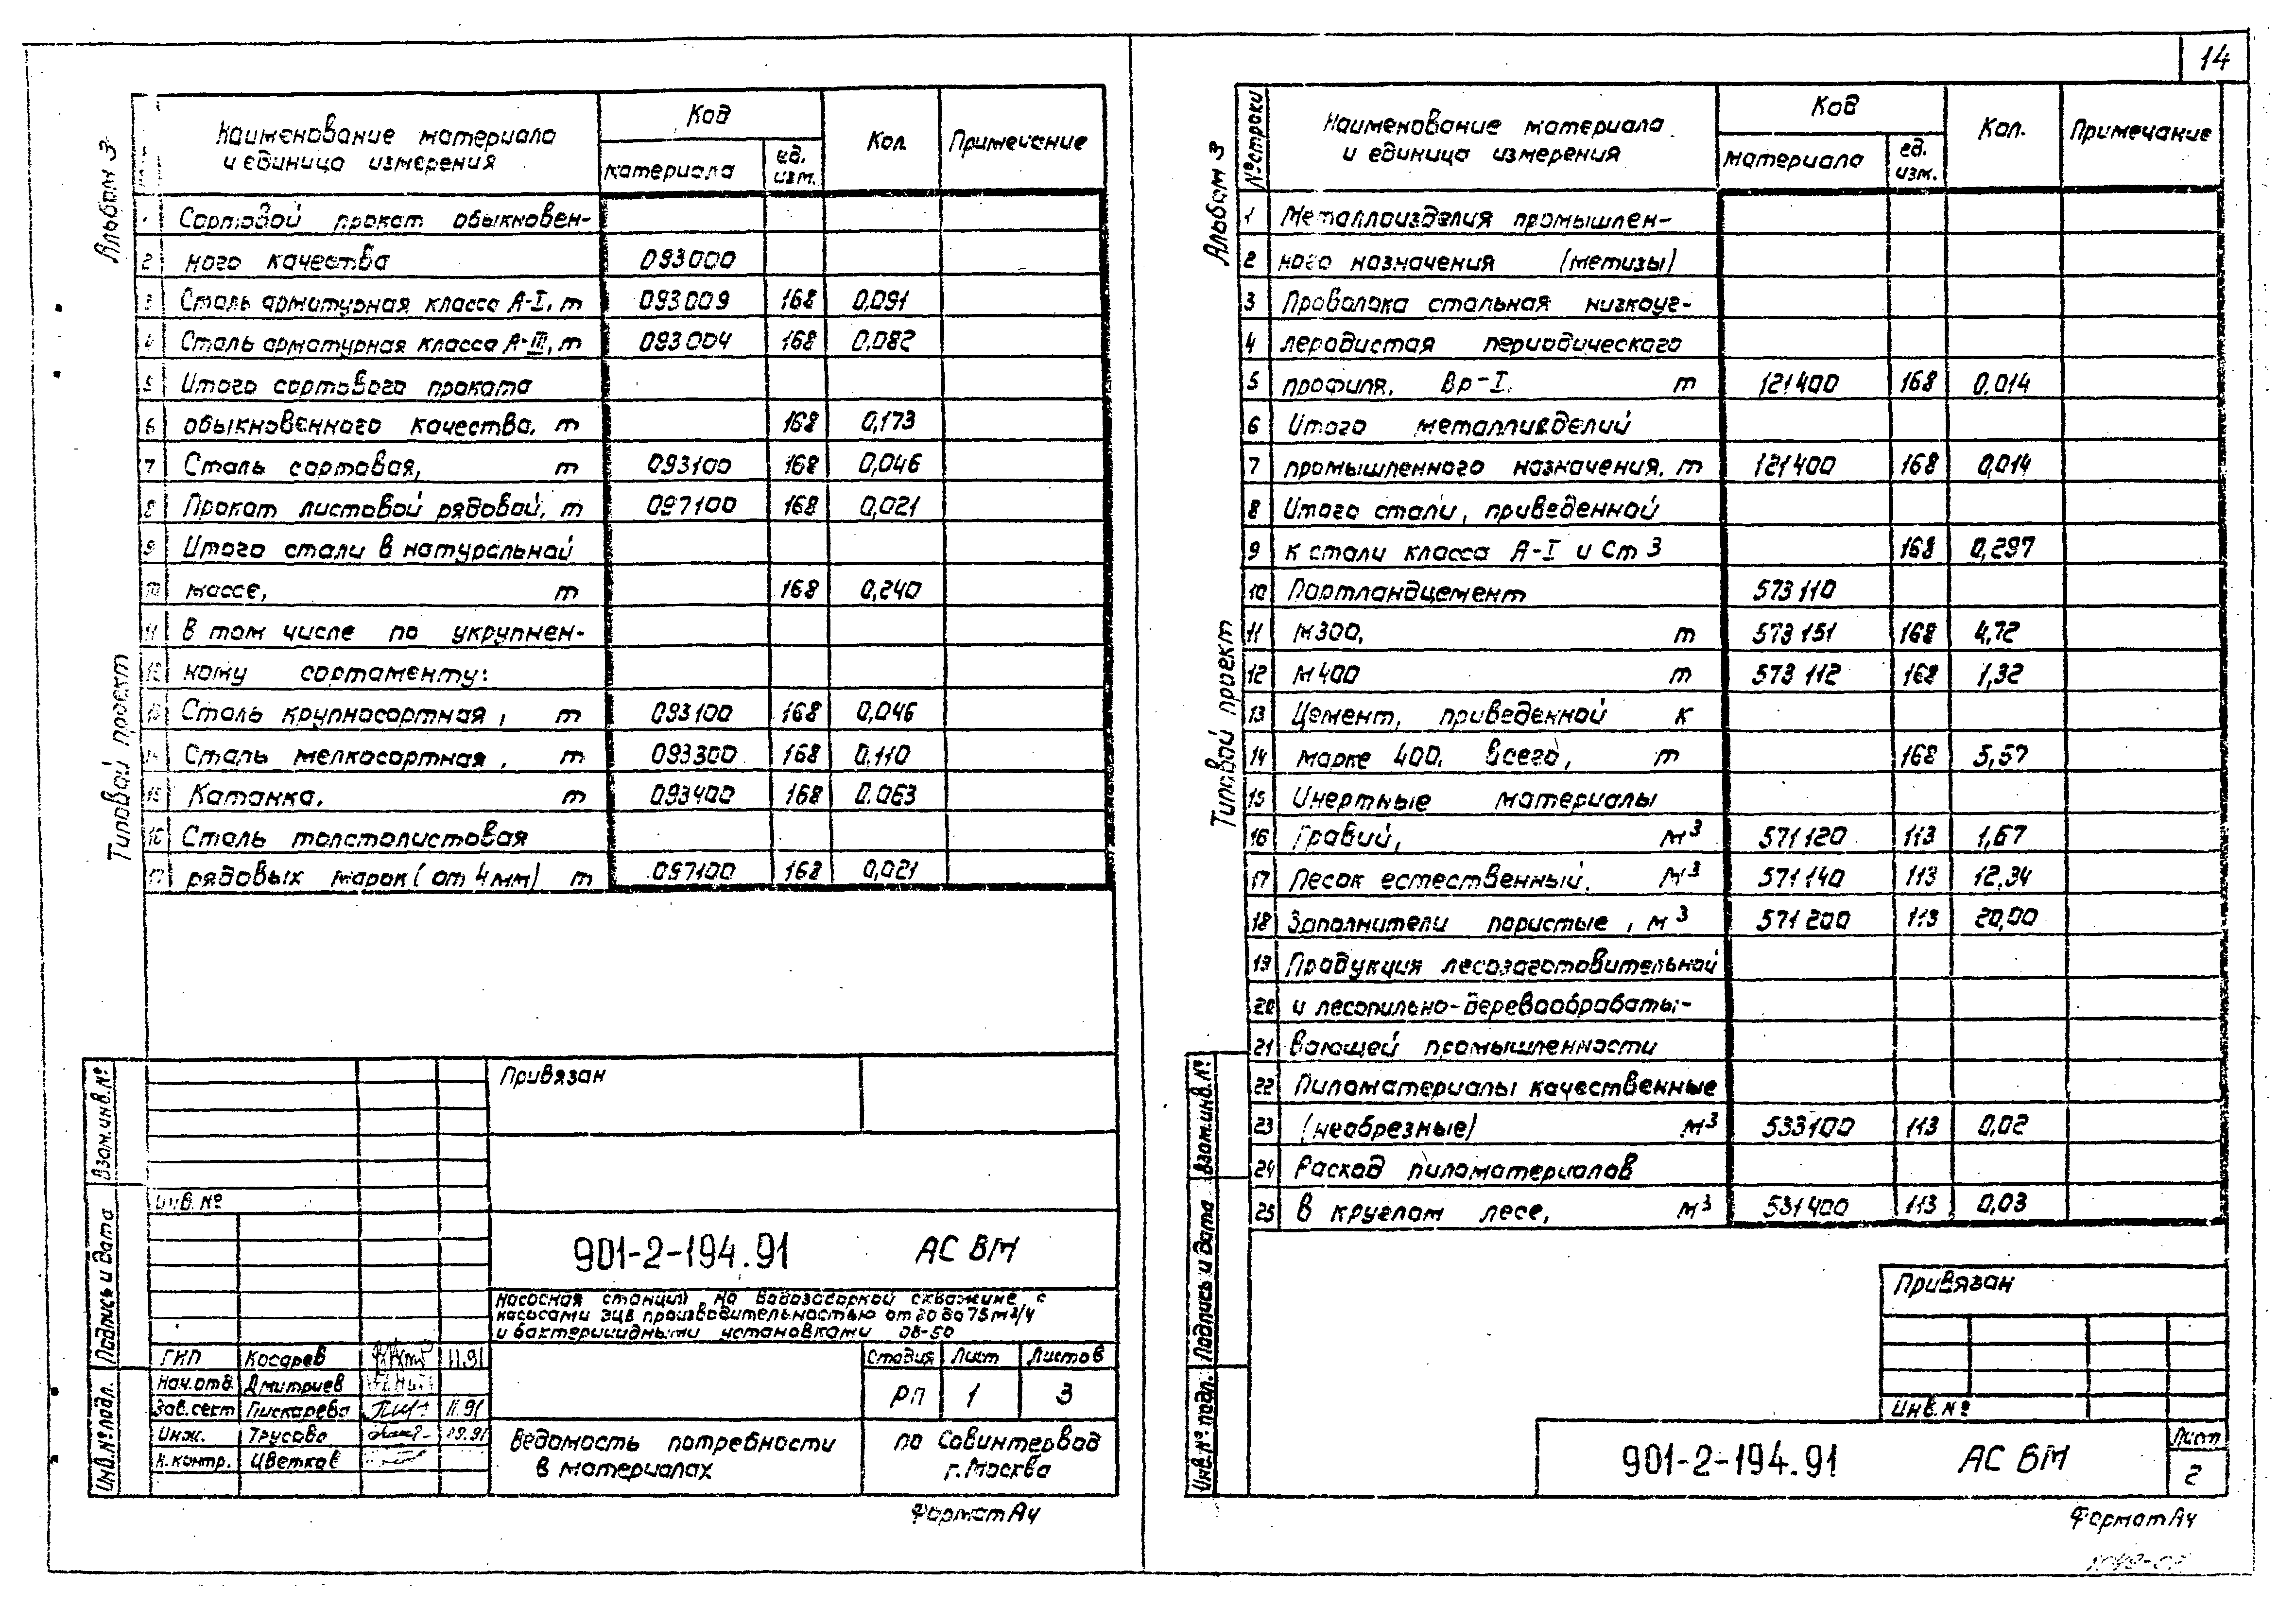 14
Альбом 3
Типовой проект
Наименование материала и единица измерения | Код материала | Код ед. изм. | Кол. | Примечание
1 Сортовой прокат обыкновен-
2 ного качества 093000
3 Сталь арматурная класса А-I, т 093009 168 0,091
4 Сталь арматурная класса А-III, т 093004 168 0,082
5 Итого сортового проката
6 обыкновенного качества, т 168 0,173
7 Сталь сортовая, т 093100 168 0,046
8 Прокат листовой рядовой, т 097100 168 0,021
9 Итого стали в натуральной
10 массе, т 168 0,240
11 В том числе по укрупнен-
12 ному сортаменту:
13 Сталь крупносортная, т 093100 168 0,046
14 Сталь мелкосортная, т 093300 168 0,110
15 Катанка, т 093400 168 0.063
16 Сталь толстолистовая
17 рядовых марок (от 4мм) т 097100 168 0,021
Взам.инв.№
Подпись и дата
Инв.№ подл.
Привязан
Инв. №
901-2-194.91 АС ВМ
Насосная станция на водозаборной скважине с
насосами ЭЦВ производительностью от 20 до 75 м3/ч
и бактерицидными установками ОВ-50
ГИП Косарев 11.91
Нач.отд. Дмитриев
Зав.сект Пискарева 11.91
Инж. Трусова 09.91
Н.контр. Цветков
Стадия Лист Листов
РП 1 3
Ведомость потребности
в материалах
ПО Совинтервод
г. Москва
Формат А4
Альбом 3
Типовой проект
№ строки | Наименование материала и единица измерения | Код материала | Код ед. изм. | Кол. | Примечание
1 Металлоизделия промышлен-
2 ного назначения (метизы)
3 Проволока стальная низкоуг-
4 леродистая периодического
5 профиля, Вр-I. т 121400 168 0,014
6 Итого металлизделий
7 промышленного назначения, т 121400 168 0,014
8 Итого стали, приведенной
9 к стали класса А-I и Ст 3 168 0,297
10 Портландцемент 573 110
11 М300, т 573 151 168 4,72
12 М400 т 573 112 168 1,32
13 Цемент, приведенной к
14 марке 400, всего, т 168 5,57
15 Инертные материалы
16 Гравий, м³ 571120 113 1,67
17 Песок естественный, м³ 571140 113 12,34
18 Заполнители пористые, м³ 571200 113 20,00
19 Продукция лесозаготовительной
20 и лесопильно-деревообрабаты-
21 вающей промышленности
22 Пиломатериалы качественные
23 (необрезные) м³ 533100 113 0,02
24 Расход пиломатериалов
25 в круглом лесе, м³ 531400 113 0,03
Взам.инв.№
Подпись и дата
Инв.№ подл.
Привязан
Инв. №
901-2-194.91 АС ВМ
Лист
2
Формат А4